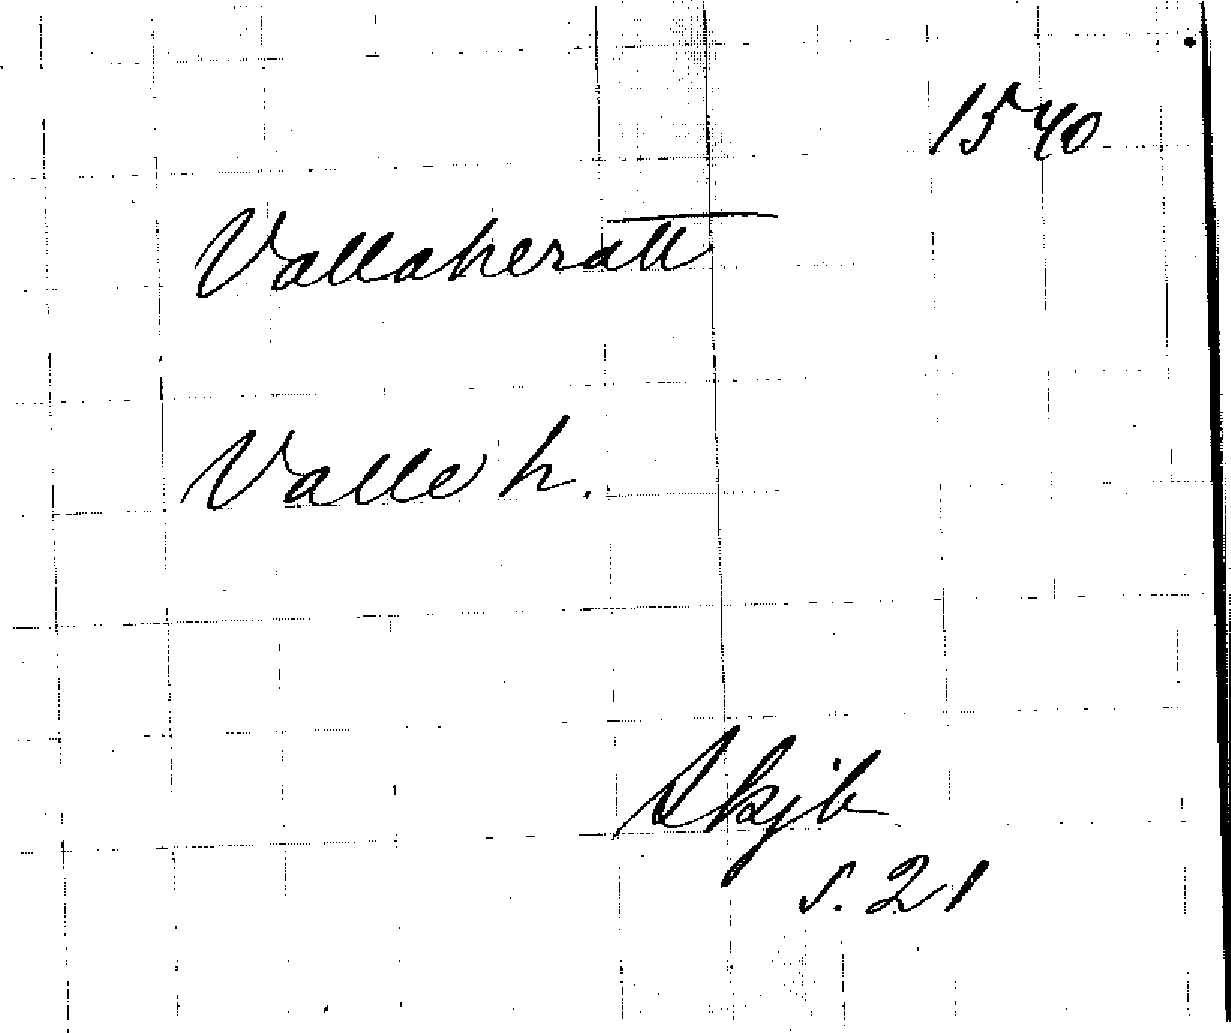 1540
Vallaheratt
Valle h.
Skjb
s. 21